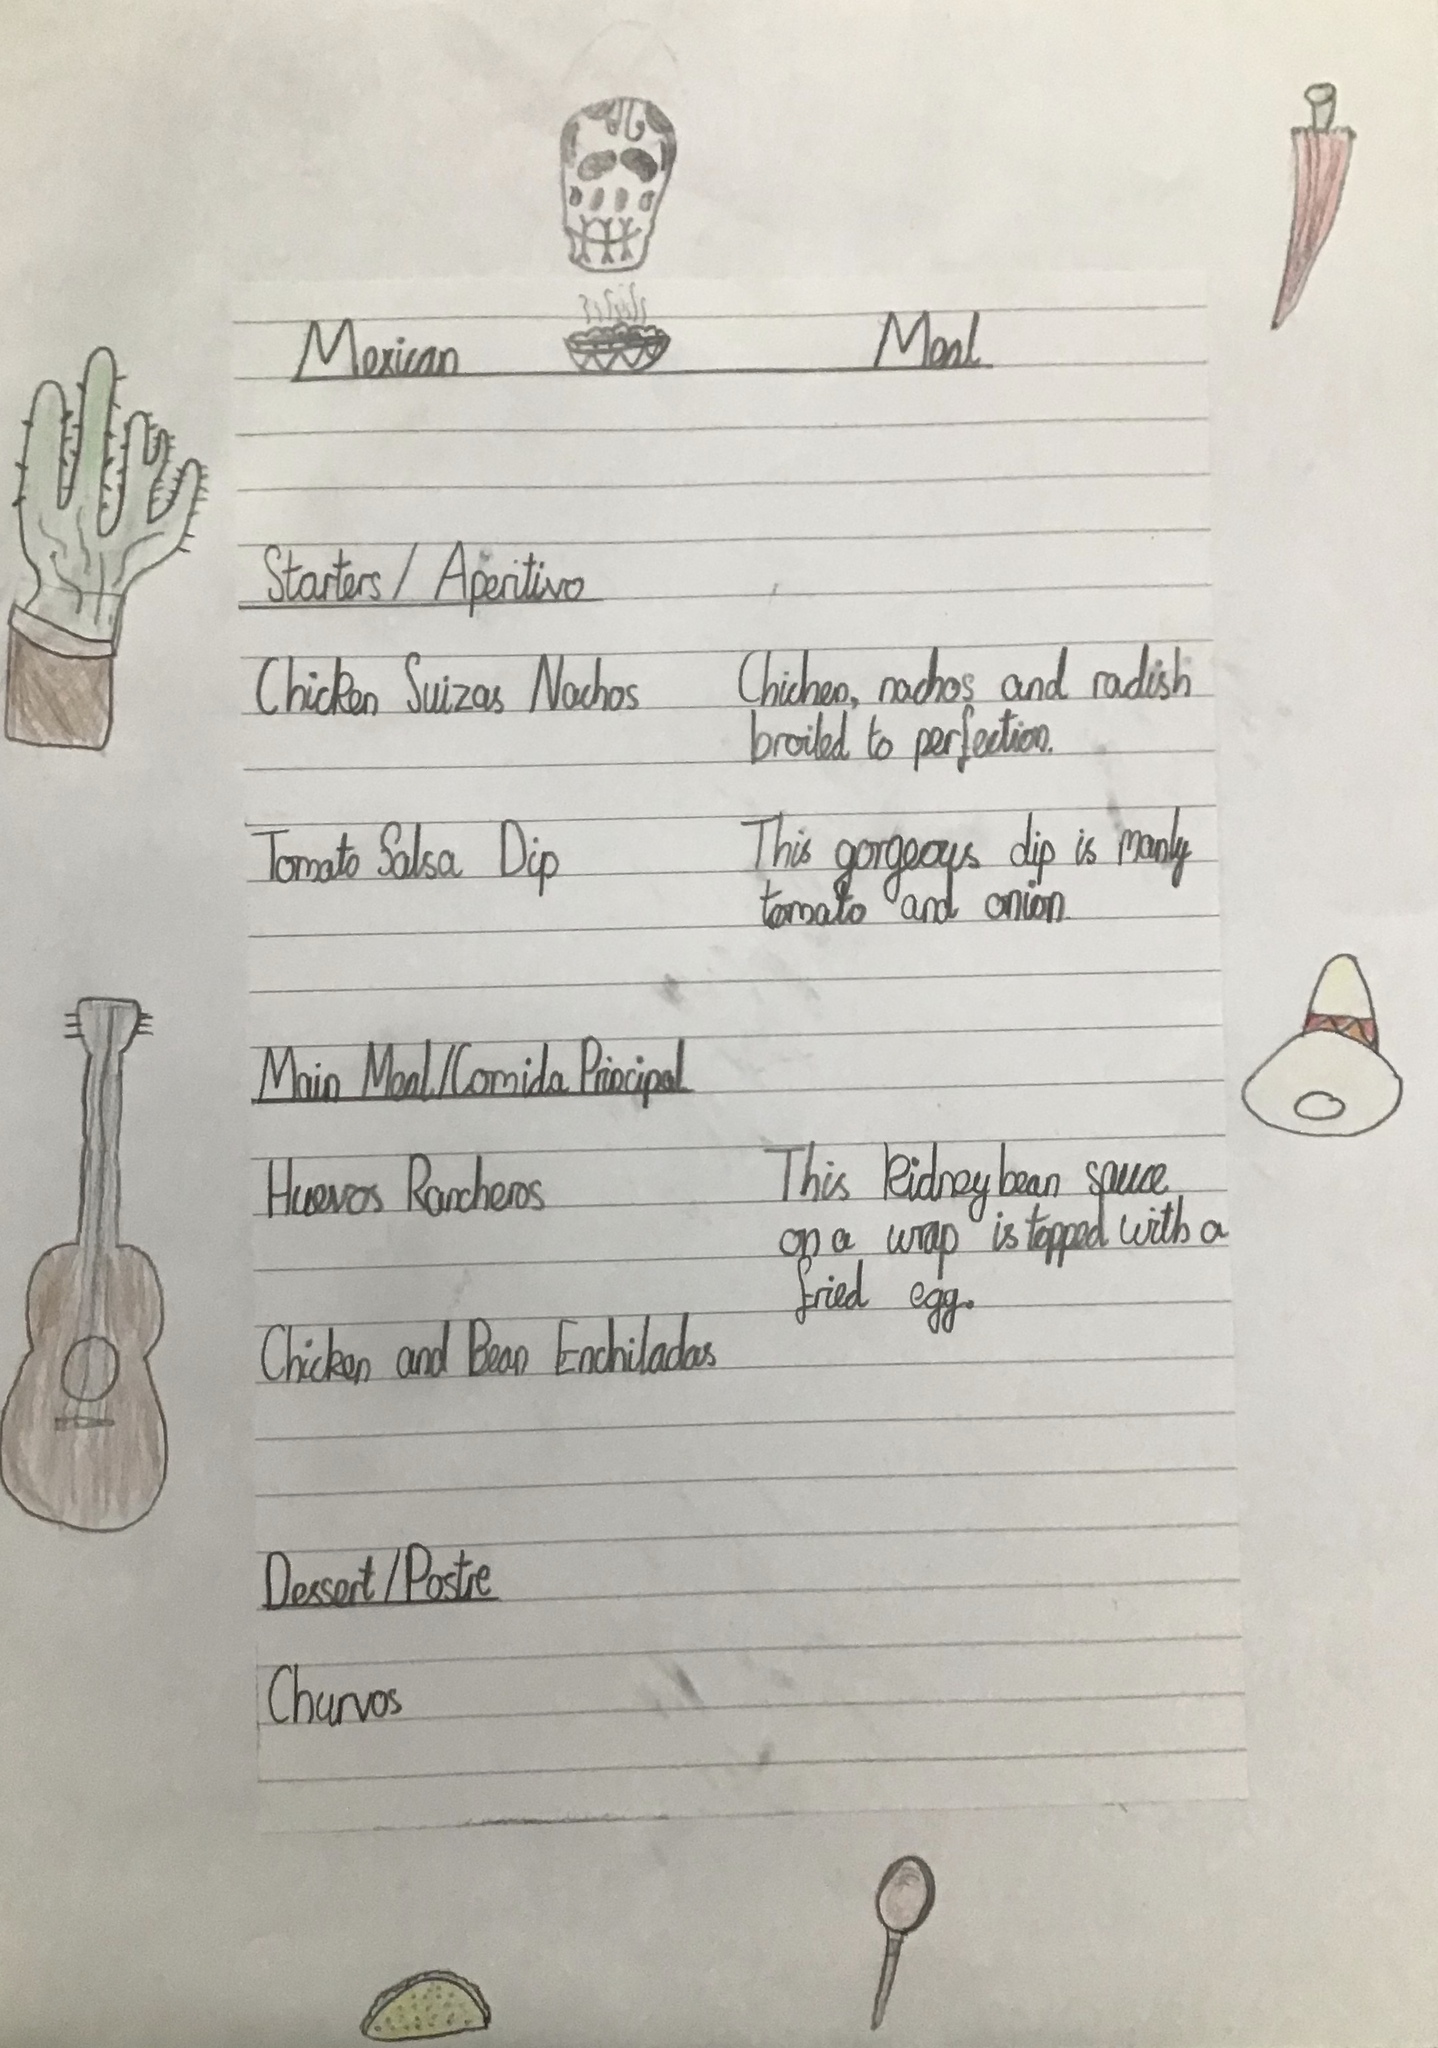 Mexican Meal
Starters / Aperitivo
Chicken Suizas Nachos Chichen, nachos and radish
broiled to perfection.
Tomato Salsa Dip This gorgeous dip is manly
tomato and onion
Main Meal/Comida Principal
Huevos Rancheros This kidney bean sauce
on a wrap is topped with a
fried egg.
Chicken and Bean Enchiladas
Dessert/Postre
Churvos